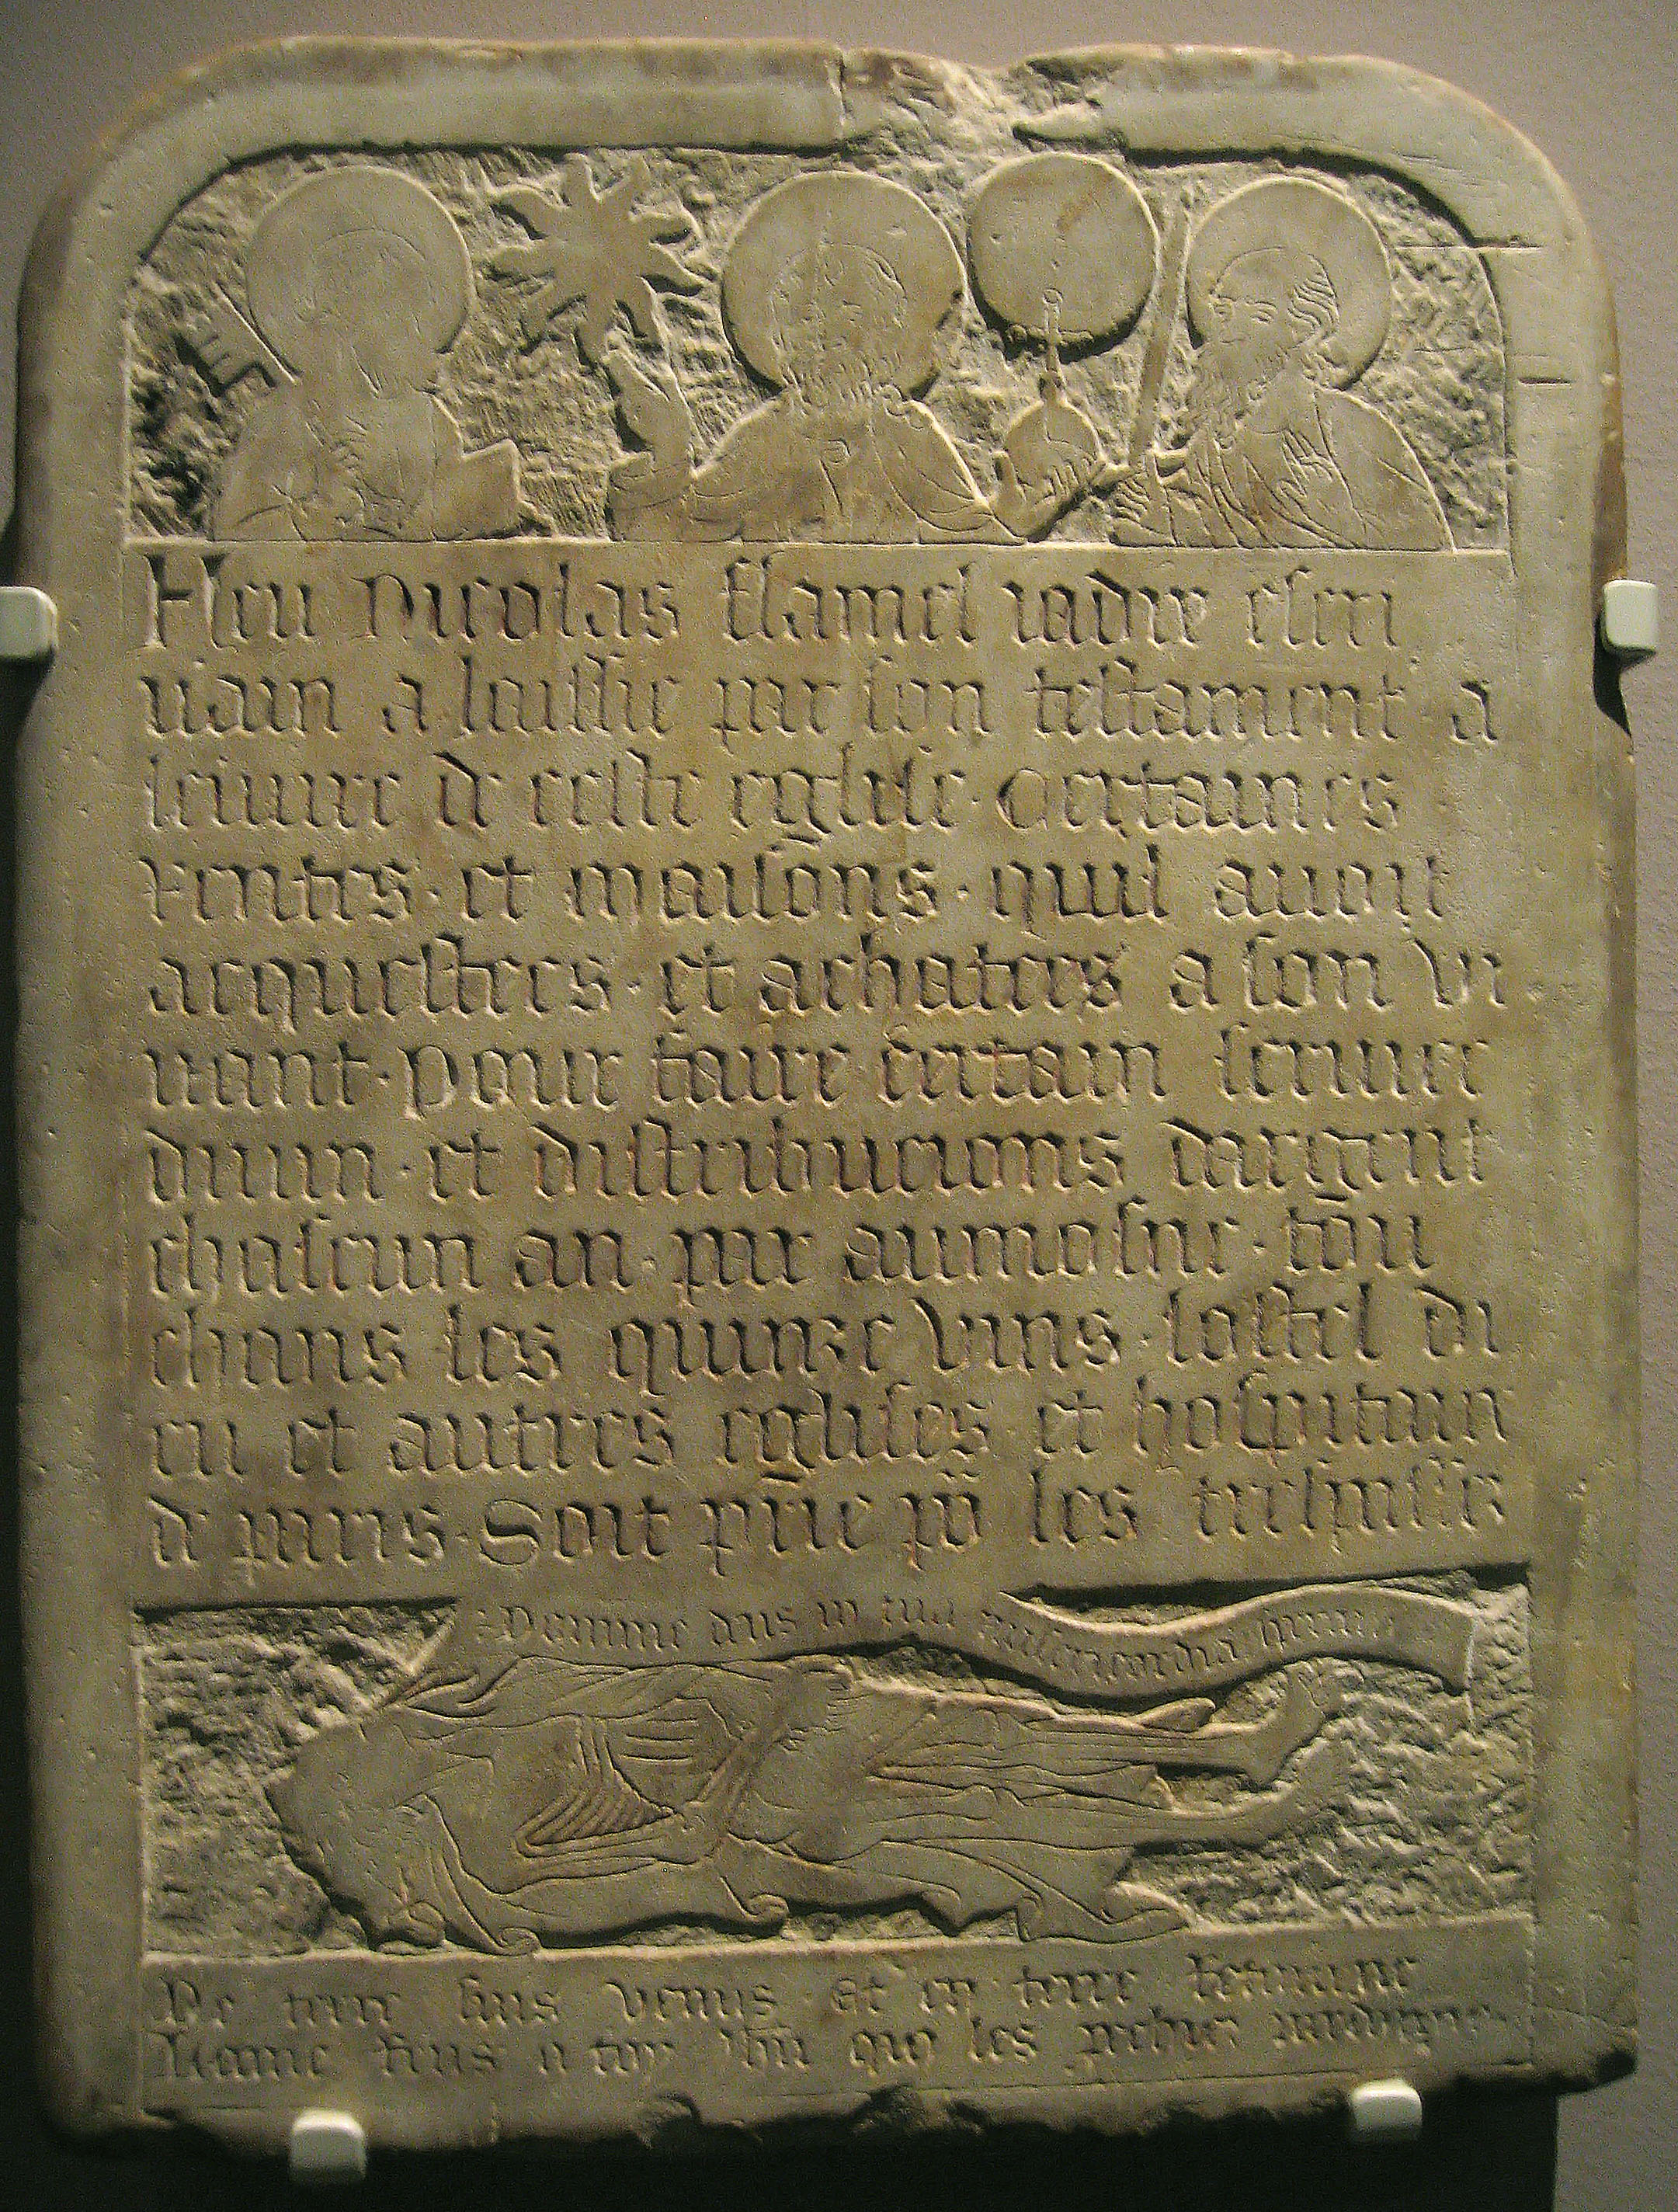 Feu nicolas flamel jadiz escri
uain a laissie par son testament a
leuure de ceste eglise · Certaines
Rentes · et maisons · quil auoit
acquestees · et achatees a son vi
uant · pour faire certain seruice
diuin · et distribucions dargent
chascun an · par aumosne · tou
chans les quinze vins · lostel di
eu et autres eglises · et hospitaux
de paris · Soit prie po les trespassez
Domine deus in tua misericordia speraui
De terre suis venus et en terre retourne
Lame rens a toy qui les pechiez pardonne